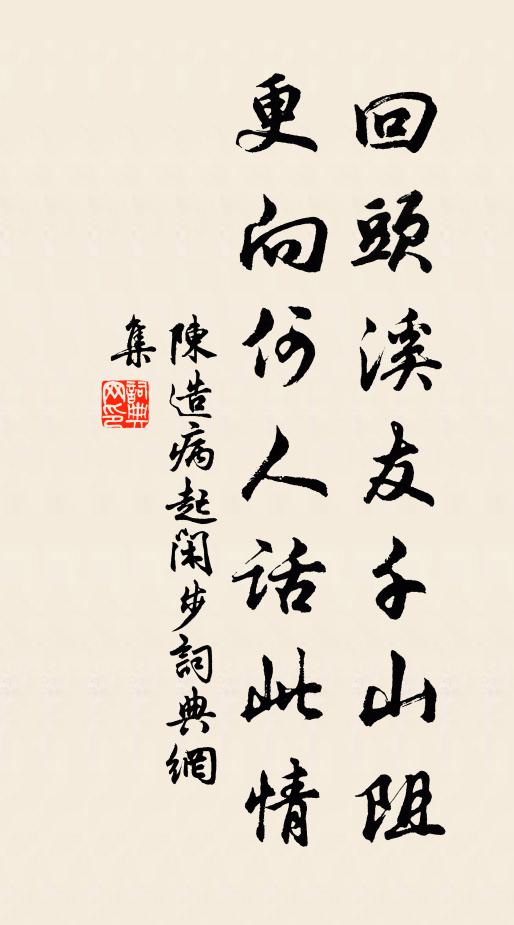 回頭溪友千山阻
更向何人話此情
陳造病起閑步詞典網
集
詞典网印